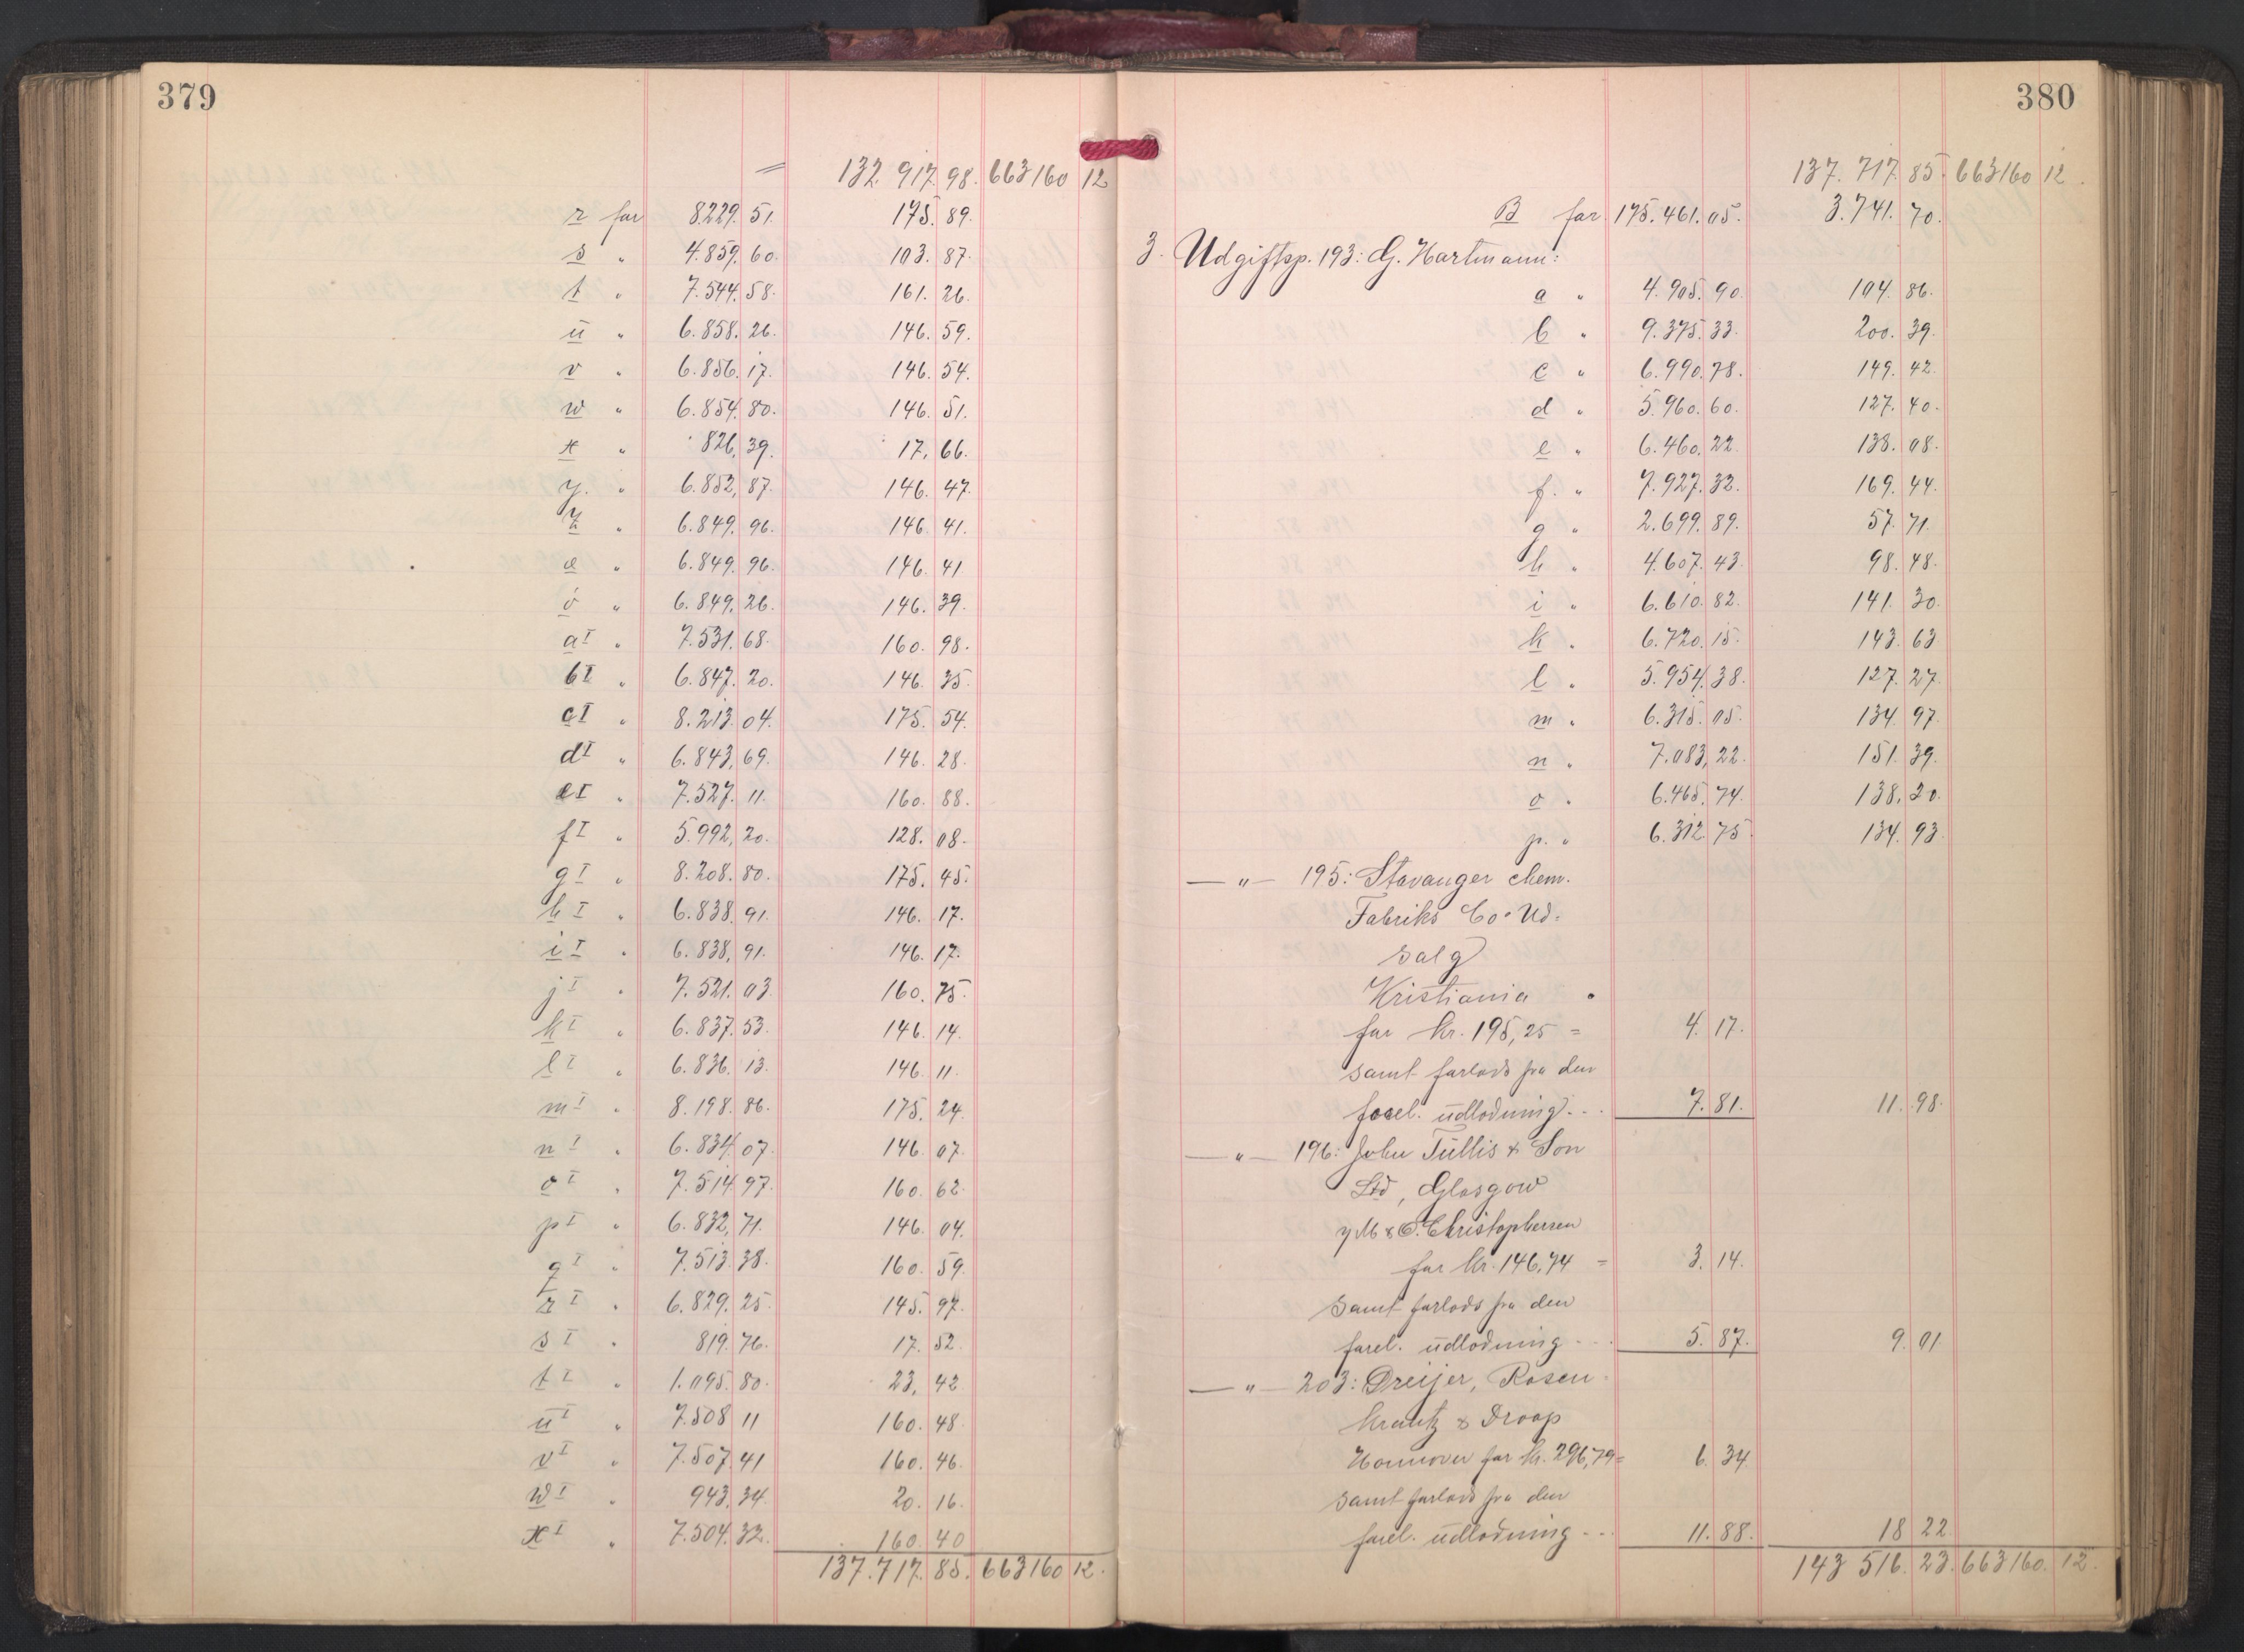 379
= 132 917. 98. 663160 12
r for 8229. 51. 175. 89.
s " 4.859. 60. 103. 87.
t " 7.544. 58. 161. 26.
u " 6.858. 26. 146. 59.
v " 6.856. 17. 146. 54.
w " 6.854. 80. 146. 51.
x " 826, 39. 17, 66.
y. " 6.852, 87. 146. 47.
z " 6.849. 96. 146. 41.
æ " 6.849. 96. 146. 41
ö " 6.849. 26. 146. 39.
aI " 7.531. 68. 160. 98.
bI " 6.847. 20. 146. 35.
cI " 8.213. 04. 175. 54.
dI " 6.843, 69. 146. 28.
eI " 7.527. 11. 160. 88.
fI " 5.992, 20. 128. 08.
gI " 8.208. 80. 175. 45.
hI " 6.838. 91. 146. 17.
iI " 6.838, 91. 146. 17.
jI " 7.521. 03. 160. 75.
kI " 6.837. 53. 146. 14.
lI " 6.836. 13. 146. 11.
mI " 8.198. 86. 175. 24.
nI " 6.834. 07. 146. 07.
oI " 7.514. 97. 160. 62.
pI " 6.832, 71. 146. 04.
qI " 7.513. 38. 160. 59.
rI " 6.829. 25. 145. 97.
sI " 819. 76. 17. 52.
tI " 1.095. 80. 23, 42
uI " 7.508 11 160. 48.
vI " 7.507. 41 160. 46.
wI " 943, 34. 20. 16.
xI " 7.504. 32. 160. 40
137.717. 85. 663160 12.
380
137. 717. 85. 663160 12.
B for 175.461. 05. 3.741. 70.
3. Udgiftsp. 193: G. Hartmann:
a " 4.905. 90. 104. 86.
b " 9.375. 33. 200. 39.
c " 6.990. 78. 149. 42.
d " 5.960. 60. 127. 40.
e " 6.460. 22. 138. 08.
f. " 7.927. 32. 169. 44.
g " 2.699. 89. 57. 71.
h " 4.607. 43. 98. 48.
i " 6.610. 82. 141. 30.
k " 6.720. 15. 143. 63.
l " 5.954. 38. 127. 27.
m " 6.315. 05. 134. 97.
n " 7.083, 22. 151. 39.
o " 6.465. 74. 138, 20.
p. " 6.312. 75. 134. 93.
— " — 195: Stavanger chem.
Fabriks Co's Ud-
salg
Kristiania
for kr. 195,25 = 4. 17.
samt forlods fra den
forel. udlodning . . . 7. 81. 11. 98.
— " — 196: John Tullis & Son
Ltd, Glasgow
v/ M & O. Christophersen
for kr. 146,74 = 3. 14.
samt forlods fra den
forel. udlodning . . . 5. 87. 9. 01
— " — 203: Dreijer, Rosen-
krantz & Droop
Hannover for kr. 296,79 = 6. 34
samt forlods fra den
forel. udlodning . . . 11. 88. 18 22
143 516. 23. 663160. 12.